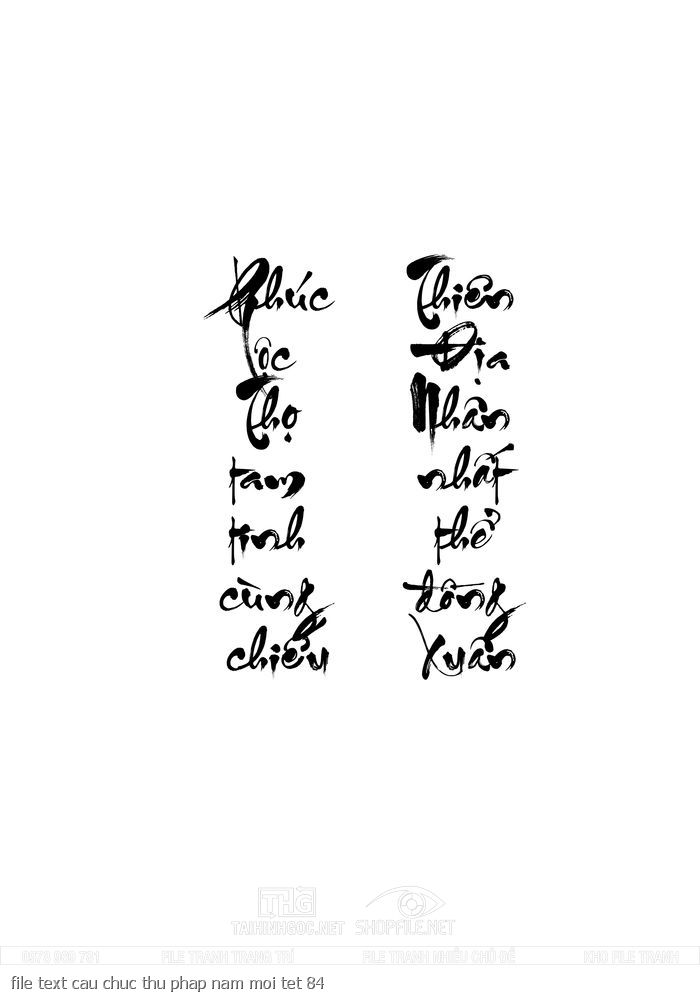 Phúc
Lộc
Thọ
tam
tinh
cùng
chiếu
Thiên
Địa
Nhân
nhất
thể
đồng
Xuân
THG
TAIHINHGOC.NET
SHOPFILE.NET
FILE TRANH TRANG TRÍ
FILE TRANH NHIỀU CHỦ ĐỀ
KHO FILE TRANH
file text cau chuc thu phap nam moi tet 84